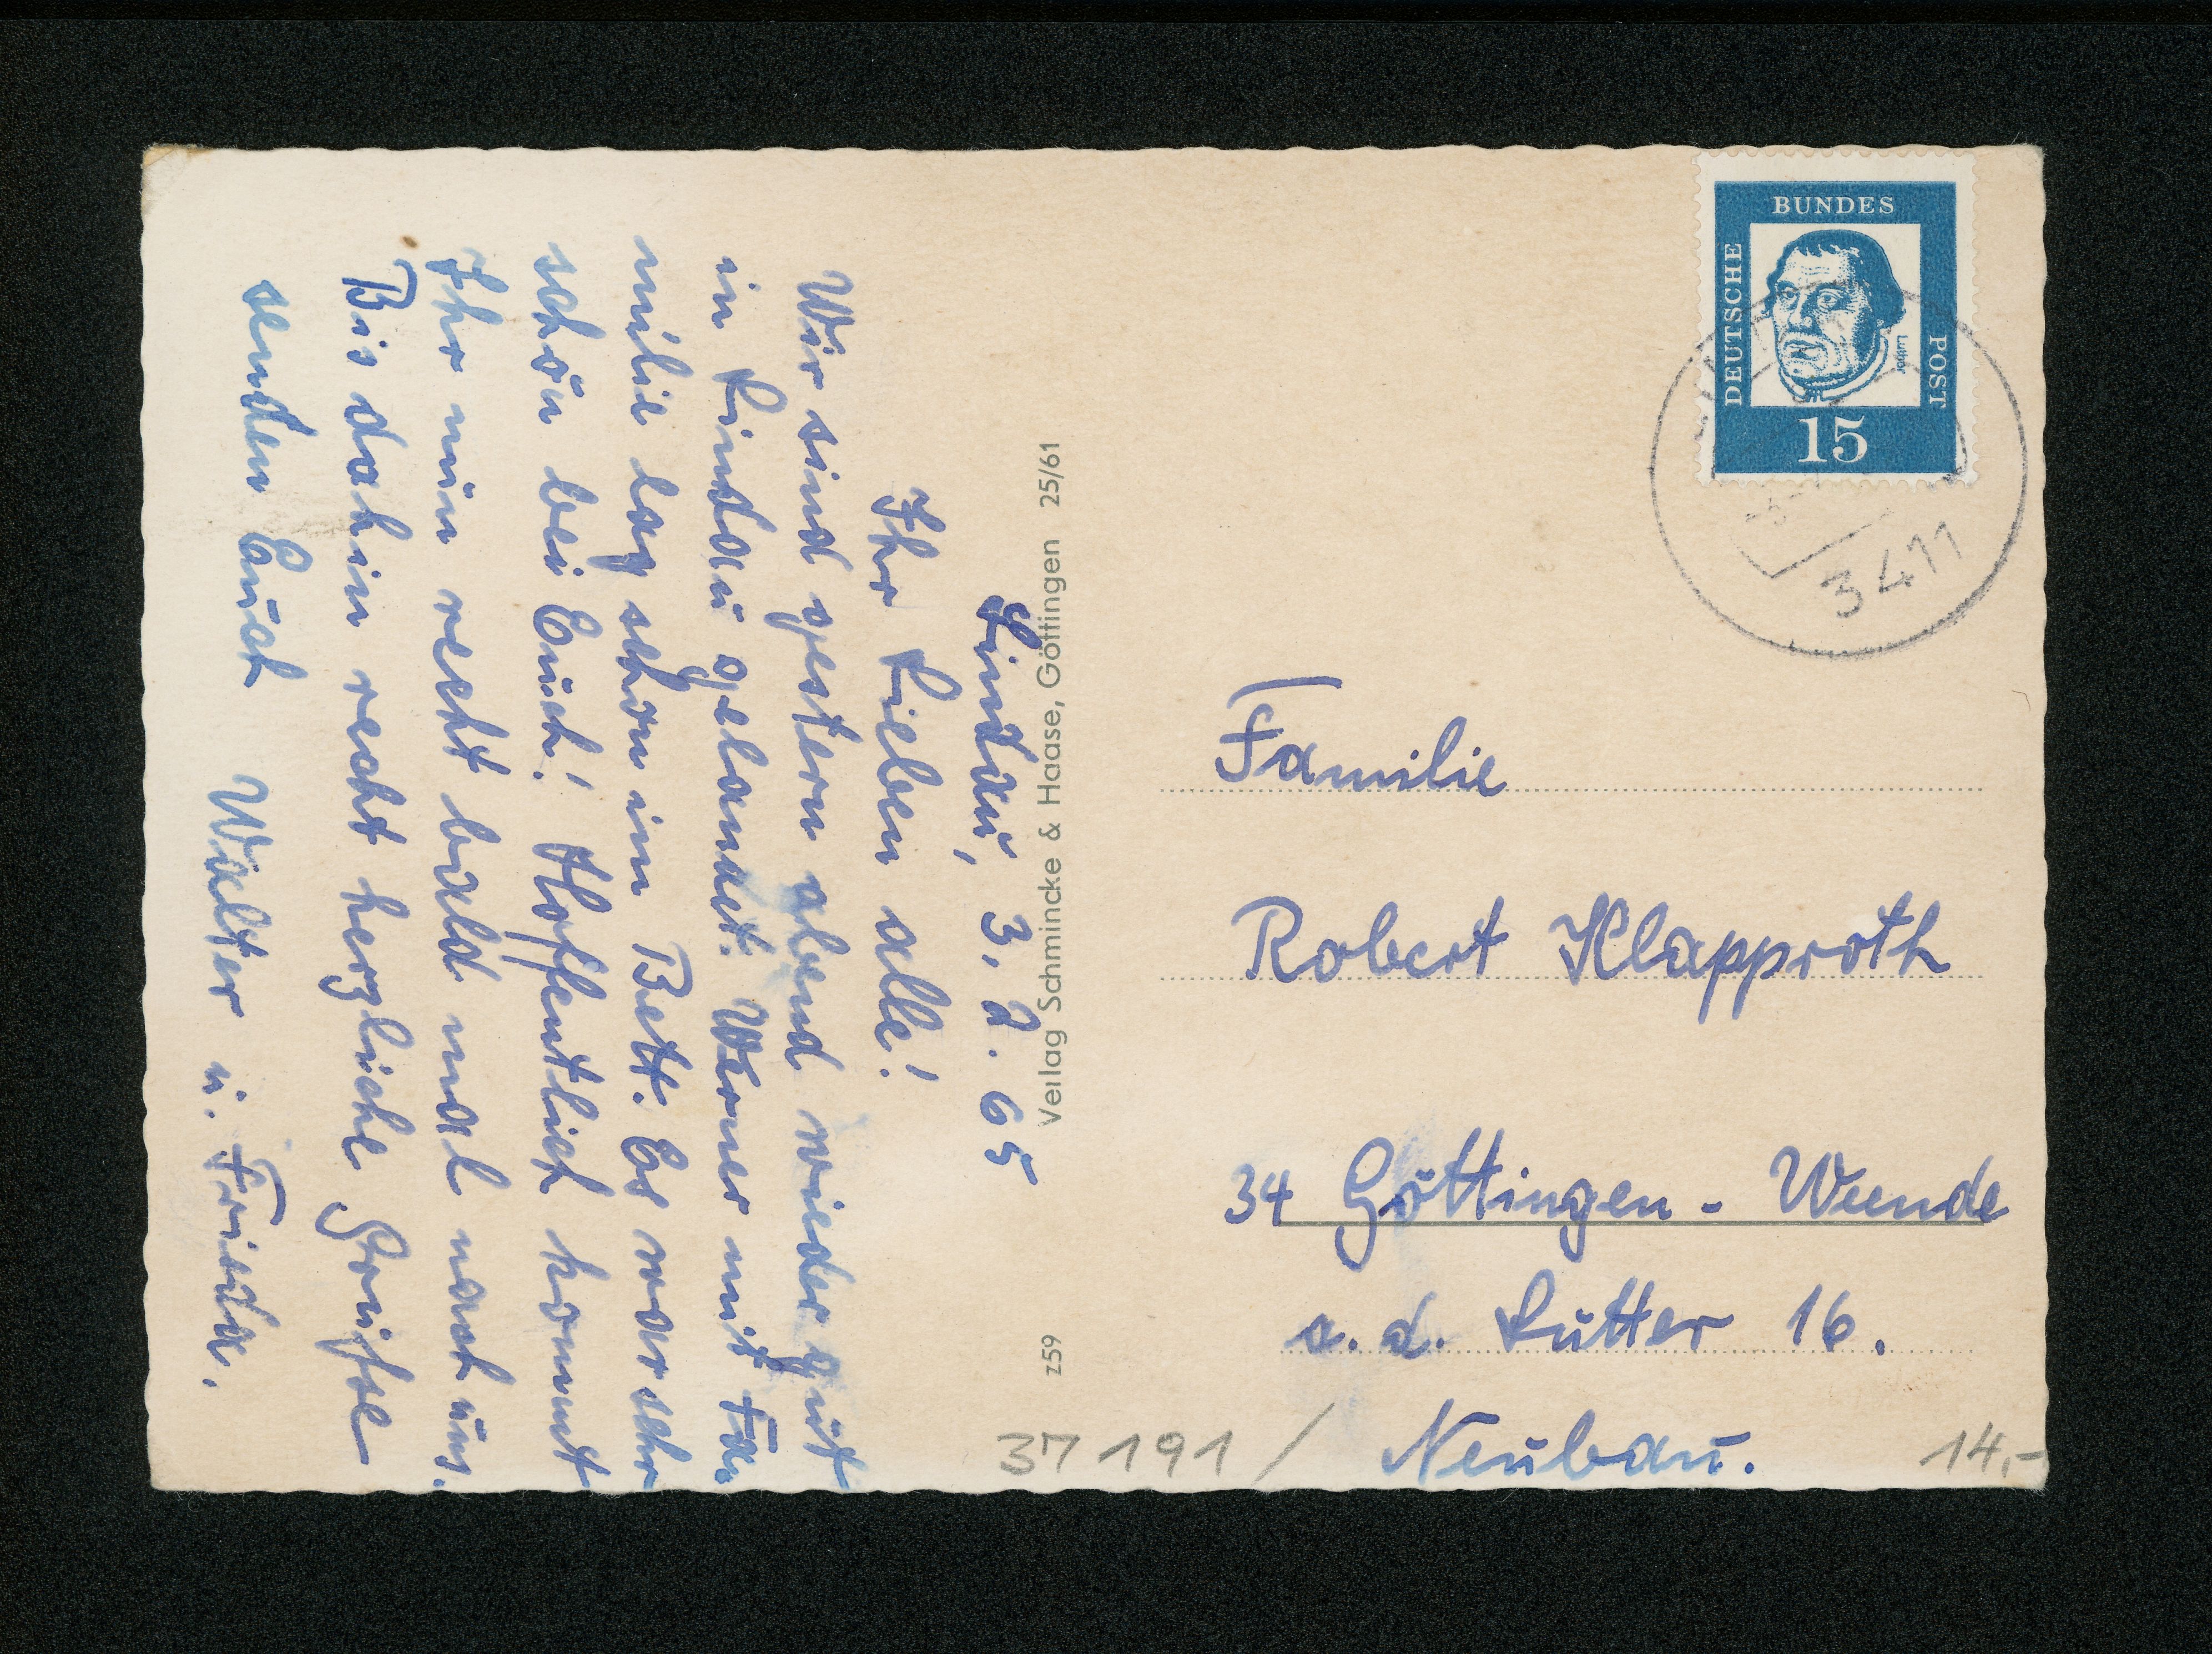 Lindau, 3. 2. 65
Ihr Lieben alle!
Wir sind gestern abend wieder gut
in Lindau gelandet. Werner mit Fa-
milie lag schon im Bett. Es war sehr
schön bei Euch! Hoffentlich kommt
Ihr nun recht bald mal nach uns.
Bis dahin recht herzliche Grüße
senden Euch Walter u. Frieda.
Verlag Schmincke & Haase, Göttingen 25/61
z59
DEUTSCHE BUNDES POST
Luther
15
3411
Familie
Robert Klapproth
34 Göttingen - Weende
a. d. Lutter 16.
Neubau.
37191/
14,-